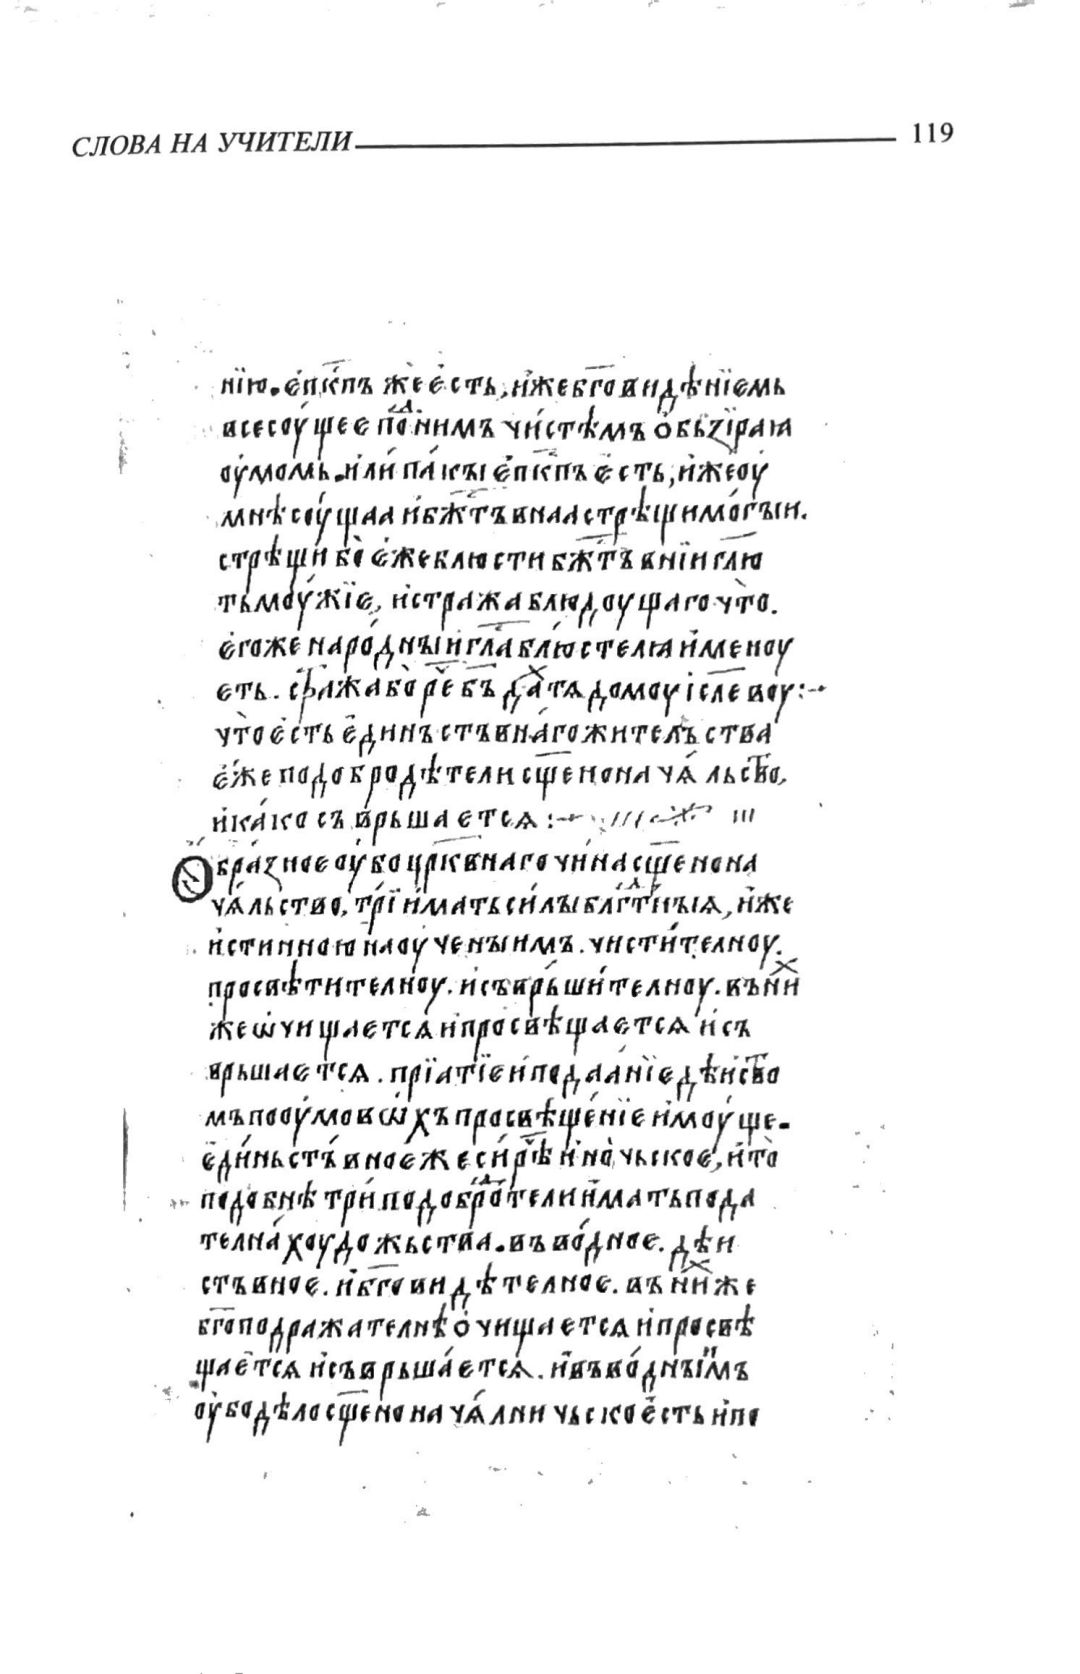 СЛОВА НА УЧИТЕЛИ 119
нїю. є҆пⷭ҇кпъ же є҆сть, и҆же бг҃овидѣнїємь
все соу́щеє поⷣнимъ чи́стѣмъ ѻ҆бъзїраѧ
оу҆момь. и҆лѝ па́кы є҆пк҃пъ є҆сть, и҆же оу҆
мнѣ соу́щаа и҆ бж҃ⷭтъвнаа стрѣщи мо́гыи.
стрѣщи́ бо є҆же блюсти бж҃ⷭтъвнїи гл҃ю
ть моу́жїе, и҆ стража блюдоущаго что̀.
є҆гоже наро́дныи гл҃а блю́стелꙗ и҆меноу
єть. стража бо реⷱ҇ бъ да́тѧ домоу і҆сл҃евоу:
что̀ є҆сть є҆динъстъвна́го жительства
є҆́же по добродѣтели сщ҃еноначѧ́льство,
и҆ ка́ко съврьшаєтсѧ:
Ѻбра́зноє оу҆бо цр҃квнаго чи́на сщ҃енона
чѧ́льство, трїи҆́мать си́лы блⷣгтныѧ, и҆же
и҆стинною наоученыимъ. чисти́телноу.
просвѣтителноу. и҆ съврьши́телноу. въ ни
же ѡ҆чищаєтсѧ и҆ просвѣщаєтсѧ и҆ съ
врьшаєтсѧ. прїатїе и҆ подаа́нїе дѣиство
мъ по оу҆мовѡхъ просвѣще́нїе и҆моу́ще.
є҆ди́ньстъвноє же сирⷱ҇ѣ и҆но́чьскоє, и҆ то̀
подобнѣ три́ по доброⷣтели и҆мать пода
телна́ хоудожьства. въво́дноє. дѣи
стъвноє. и҆ бг҃овидѣтелноє. въ ни́же
бг҃оподражателнѣ ѻ҆чищаєтсѧ и҆ просвѣ
щаєтсѧ и҆ съврьша́єтсѧ. и҆ въво́дныимъ
оу҆бо дѣло сщ҃еноначѧ́лничьско є҆сть и҆ по